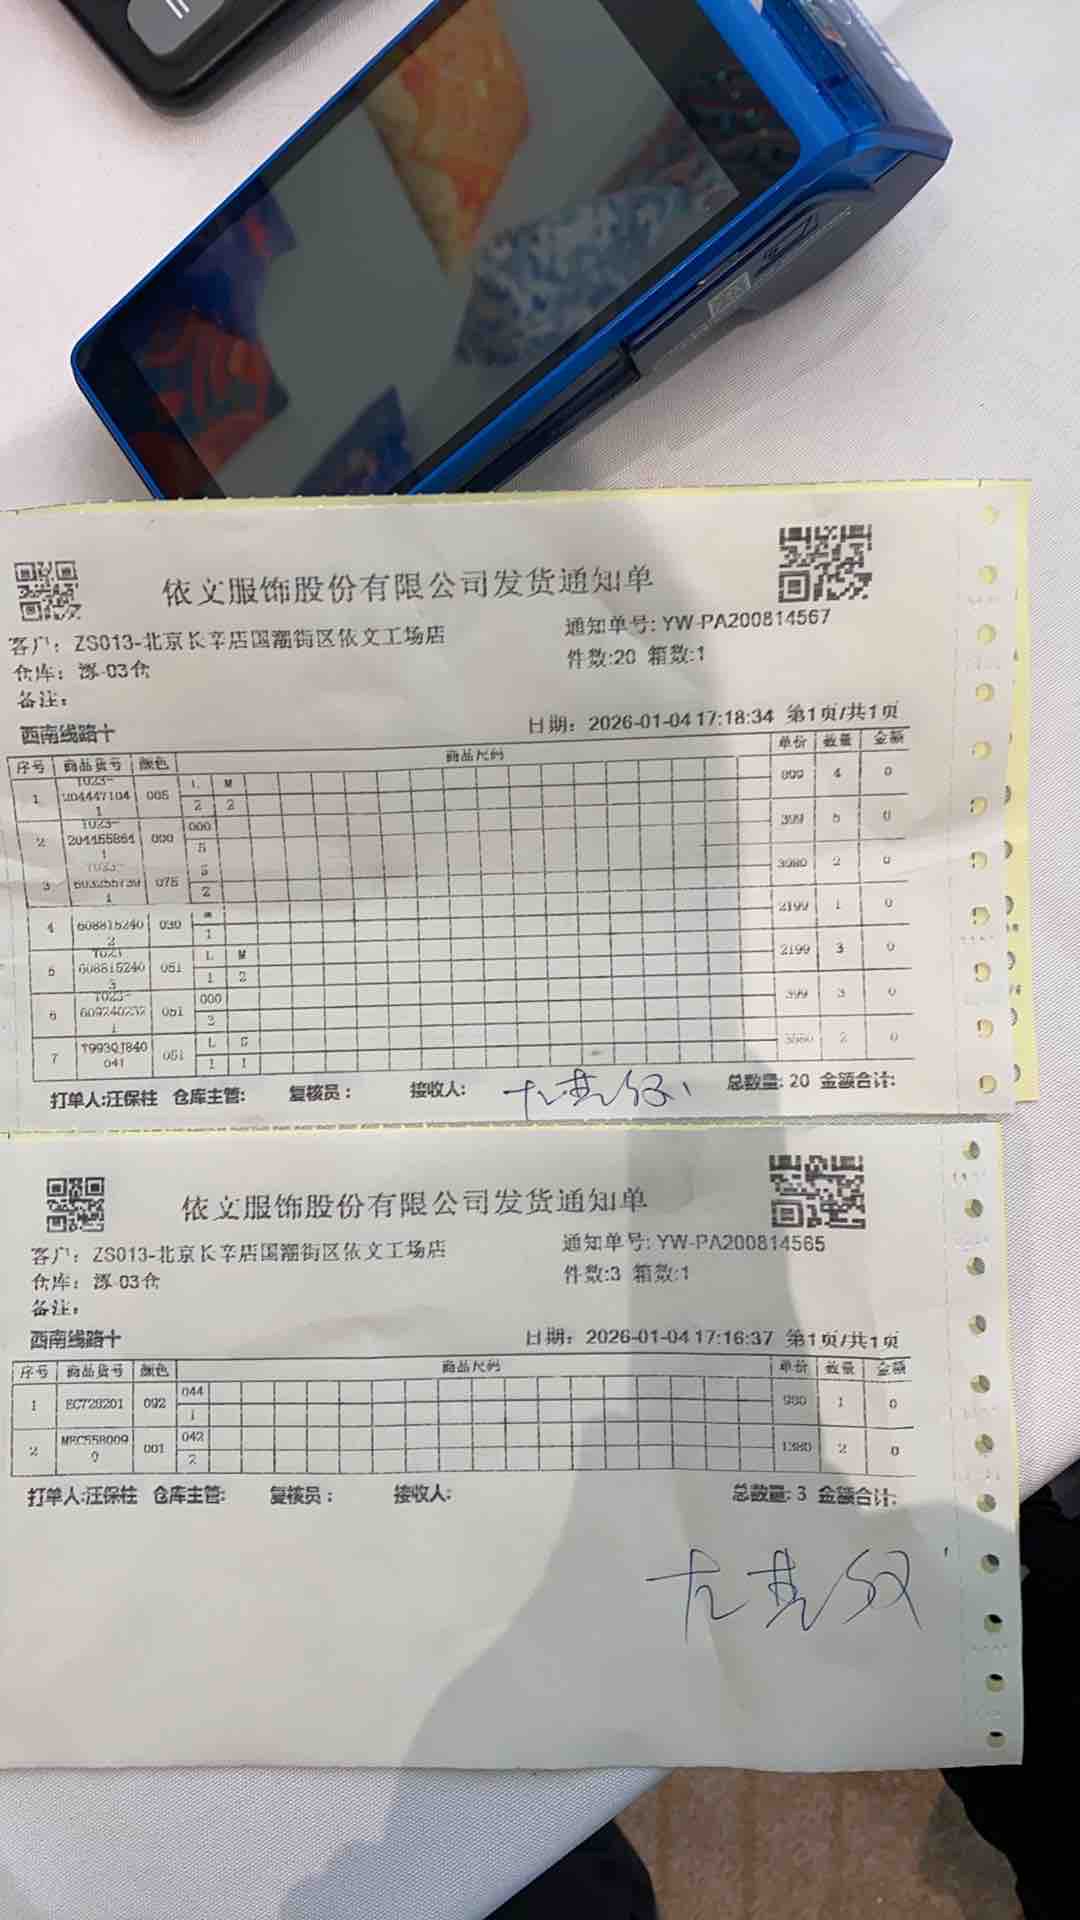 依文服饰股份有限公司发货通知单
客户：ZS013-北京长辛店国潮街区依文工场店
通知单号: YW-PA200814567
仓库：涿-03仓
件数:20 箱数:1
备注：
西南线路十
日期：2026-01-04 17:18:34 第1页/共1页
序号 商品货号 颜色 商品尺码 单价 数量 金额
L M
1 005 899 4 0
2 2
000
2 000 399 5 0
5
S
3 075 3980 2 0
2
4 608815240 2 030 2199 1 0
1
L M
5 608815240 051 2199 3 0
1 2
000
6 051 399 3 0
3
L S
7 T993QT840 041 051 2 0
1 1
打单人:汪保柱 仓库主管: 复核员： 接收人: 总数量: 20 金额合计:
依文服饰股份有限公司发货通知单
客户：ZS013-北京长辛店国潮街区依文工场店
通知单号: YW-PA200814565
仓库：涿-03仓
件数:3 箱数:1
备注：
西南线路十
日期：2026-01-04 17:16:37 第1页/共1页
序号 商品货号 颜色 商品尺码 单价 数量 金额
044
1 EC728201 092 980 1 0
1
042
2 001 1380 2 0
2
打单人:汪保柱 仓库主管: 复核员： 接收人: 总数量: 3 金额合计: